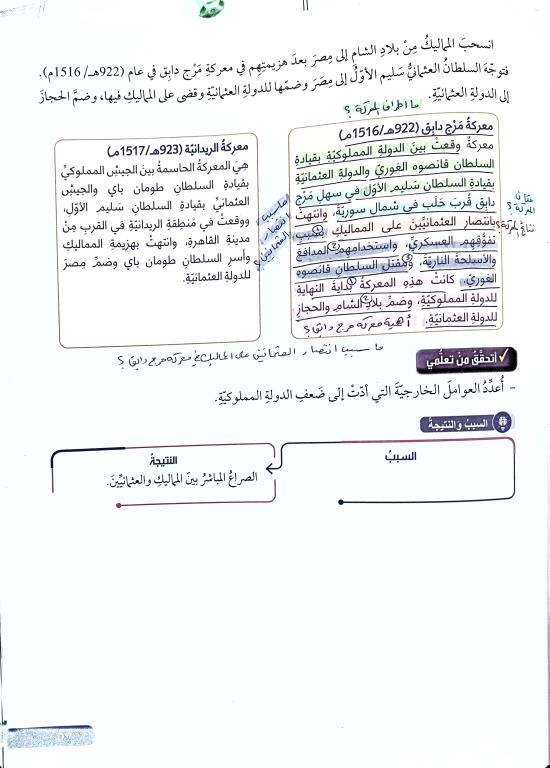 انسحبَ المماليكُ مِنْ بلادِ الشامِ إلى مِصرَ بعدَ هزيمتِهِم في معركةِ مَرْجِ دابِق في عام (922هـ/ 1516م).
فتوجّهَ السلطانُ العثمانيُّ سَليم الأوّلُ إلى مِصْرَ وضمّها للدولةِ العثمانيّةِ وقضى على المماليكِ فيها، وضمَّ الحجازَ
إلى الدولةِ العثمانيّةِ.
ما اطراف المعركة ؟
معركةُ مَرْج دابق (922هـ/1516م)
معركة وقعتْ بينَ الدولةِ المملوكيّةِ بقيادةِ
السلطان قانصوه الغوري والدولةِ العثمانيّةِ
بقيادةِ السلطان سَليم الأوّل في سهلِ مَرْج
دابق قُربَ حَلَب في شمال سوريّةَ، وانتهتْ
بانتصارِ العثمانيّينَ على المماليكِ بسببِ
تفوُّقِهِم العسكريّ، واستخدامِهِم المدافعَ
والأسلحةَ الناريّةَ، ومَقتلِ السلطانِ قانصوه
الغوري. كانتْ هذِهِ المعركةُ بدايةَ النهايةِ
للدولةِ المملوكيّةِ، وضمِّ بلادِ الشامِ والحجازِ
للدولةِ العثمانيّةِ.
أهمية معركة مرج دابق ؟
مكان المعركة ؟
نتائج المعركة ؟
ما سبب انتصار العثمانين ؟
معركةُ الريدانيّة (923هـ/1517م)
هِيَ المعركةُ الحاسمةُ بينَ الجيشِ المملوكيِّ
بقيادةِ السلطانِ طومان باي والجيشِ
العثمانيِّ بقيادةِ السلطانِ سَليم الأوّلِ،
ووقعتْ في مَنطِقةِ الريدانيّةِ في القربِ مِنْ
مدينةِ القاهرةِ، وانتهتْ بهزيمةِ المماليكِ
وأسرِ السلطانِ طومان باي وضمِّ مِصرَ
للدولةِ العثمانيّةِ.
ما سبب انتصار العثمانين على المماليك في معركة مرج دابق ؟
أتحقَّقُ مِنْ تعلُّمي
- أُعدِّدُ العواملَ الخارجيّةَ التي أدّتْ إلى ضَعفِ الدولةِ المملوكيّةِ.
السببُ والنتيجةُ
السببُ
النتيجةُ
الصراعُ المباشرُ بينَ المماليكِ والعثمانيِّينَ.